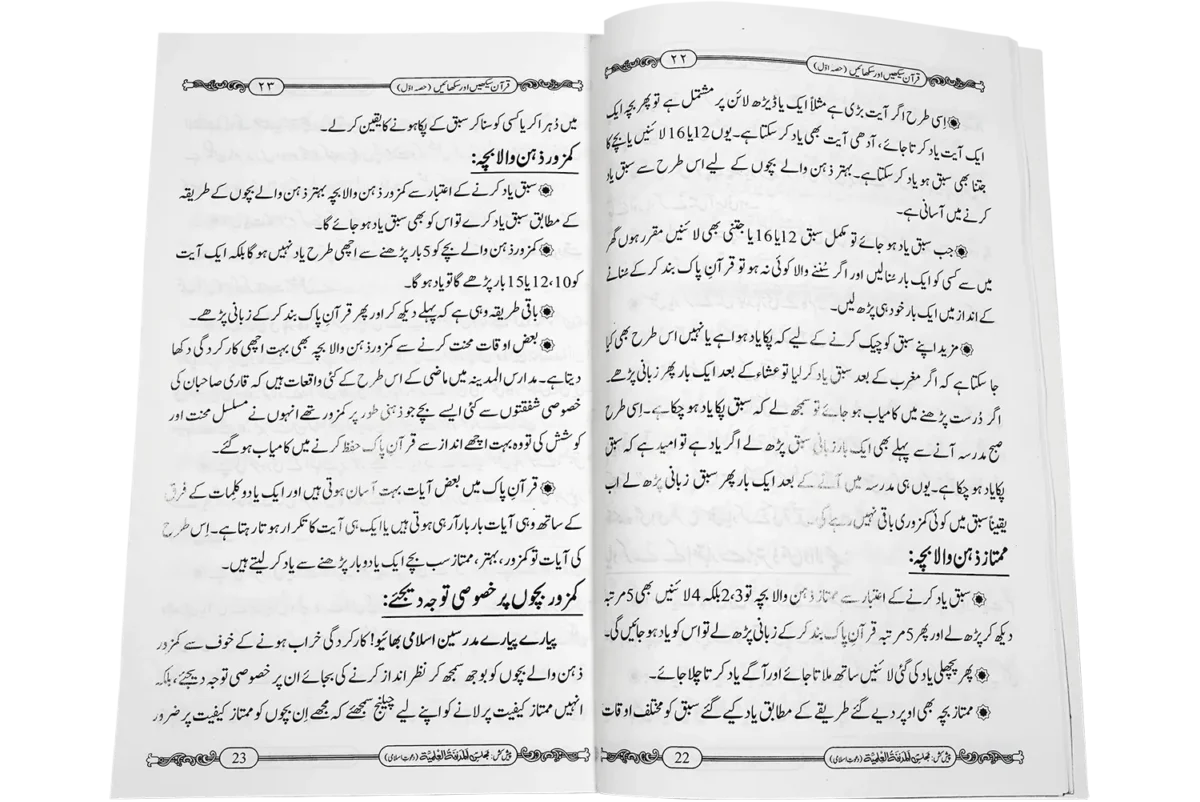 ۲۲
قرآن سیکھیں اور سکھائیں (حصہ اوّل)
اِسی طرح اگر آیت بڑی ہے مثلاً ایک یا ڈیڑھ لائن پر مشتمل ہے تو پھر بچہ ایک
ایک آیت یاد کرتا جائے، آدھی آیت بھی یاد کر سکتا ہے۔ یوں 12 یا 16 لائنیں یا بچے کا
جتنا بھی سبق ہو یاد کر سکتا ہے۔ بہتر ذہن والے بچوں کے لیے اس طرح سے سبق یاد
کرنے میں آسانی ہے۔
جب سبق یاد ہو جائے تو مکمل سبق 12 یا 16 یا جتنی بھی لائنیں مقرر ہوں گھر
میں سے کسی کو ایک بار سنالیں اور اگر سُننے والا کوئی نہ ہو تو قرآنِ پاک بند کر کے سُنانے
کے انداز میں ایک بار خود ہی پڑھ لیں۔
مزید اپنے سبق کو چیک کرنے کے لیے کہ پکا یاد ہوا ہے یا نہیں اس طرح بھی کیا
جا سکتا ہے کہ اگر مغرب کے بعد سبق یاد کر لیا تو عشاء کے بعد ایک بار پھر زبانی پڑھے۔
اگر دُرست پڑھنے میں کامیاب ہو جائے تو سمجھ لے کہ سبق پکا یاد ہو چکا ہے۔ اِسی طرح
صبح مدرسہ آنے سے پہلے بھی ایک بار زبانی سبق پڑھ لے اگر یاد ہے تو امید ہے کہ سبق
پکا یاد ہو چکا ہے۔ یوں ہی مدرسہ میں آنے کے بعد ایک بار پھر سبق زبانی پڑھ لے اب
یقیناً سبق میں کوئی کمزوری باقی نہیں رہے گی۔
ممتاز ذہن والا بچہ:
سبق یاد کرنے کے اعتبار سے ممتاز ذہن والا بچہ تو 2،3 بلکہ 4 لائنیں بھی 5 مرتبہ
دیکھ کر پڑھ لے اور پھر 5 مرتبہ قرآنِ پاک بند کر کے زبانی پڑھ لے تو اس کو یاد ہو جائیں گی۔
پھر پچھلی یاد کی گئی لائنیں ساتھ ملاتا جائے اور آگے یاد کرتا چلا جائے۔
ممتاز بچہ بھی اوپر دیے گئے طریقے کے مطابق یاد کیے گئے سبق کو مختلف اوقات
22
پیش کش: مجلس المدینۃ العلمیۃ (دعوت اسلامی)
۲۳
قرآن سیکھیں اور سکھائیں (حصہ اوّل)
میں دُہرا کر یا کسی کو سنا کر سبق کے پکا ہونے کا یقین کر لے۔
کمزور ذہن والا بچہ:
سبق یاد کرنے کے اعتبار سے کمزور ذہن والا بچہ بہتر ذہن والے بچوں کے طریقہ
کے مطابق سبق یاد کرے تو اس کو بھی سبق یاد ہو جائے گا۔
کمزور ذہن والے بچے کو 5 بار پڑھنے سے اچھی طرح یاد نہیں ہو گا بلکہ ایک آیت
کو 10، 12 یا 15 بار پڑھے گا تو یاد ہو گا۔
باقی طریقہ وہی ہے کہ پہلے دیکھ کر اور پھر قرآنِ پاک بند کر کے زبانی پڑھے۔
بعض اوقات محنت کرنے سے کمزور ذہن والا بچہ بھی بہت اچھی کارکردگی دکھا
دیتا ہے۔ مدارس المدینہ میں ماضی کے اس طرح کے کئی واقعات ہیں کہ قاری صاحبان کی
خصوصی شفقتوں سے کئی ایسے بچے جو ذہنی طور پر کمزور تھے انہوں نے مسلسل محنت اور
کوشش کی تو وہ بہت اچھے انداز سے قرآنِ پاک حفظ کرنے میں کامیاب ہو گئے۔
قرآنِ پاک میں بعض آیات بہت آسان ہوتی ہیں اور ایک یا دو کلمات کے فرق
کے ساتھ وہی آیات بار بار آرہی ہوتی ہیں یا ایک ہی آیت کا تکرار ہوتا رہتا ہے۔ اِس طرح
کی آیات تو کمزور، بہتر، ممتاز سب بچے ایک یا دو بار پڑھنے سے یاد کر لیتے ہیں۔
کمزور بچوں پر خصوصی توجہ دیجئے:
پیارے پیارے مدرسین اسلامی بھائیو! کارکردگی خراب ہونے کے خوف سے کمزور
ذہن والے بچوں کو بوجھ سمجھ کر نظر انداز کرنے کی بجائے ان پر خصوصی توجہ دیجئے، بلکہ
انہیں ممتاز کیفیت پر لانے کو اپنے لیے چیلنج سمجھئے کہ مجھے اِن بچوں کو ممتاز کیفیت پر ضرور
23
پیش کش: مجلس المدینۃ العلمیۃ (دعوت اسلامی)